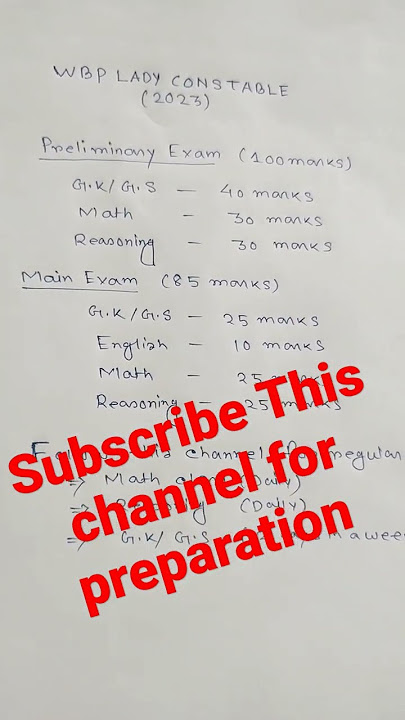 WBP LADY CONSTABLE
(2023)
Preliminary Exam (100 marks)
G.K/G.S — 40 marks
Math - 30 marks
Reasoning - 30 marks
Main Exam (85 marks)
G.K/G.S - 25 marks
English - 10 marks
Math - 25
Reasoning - 25 marks
channel regular
⇒ Math (Daily)
⇒ (Daily)
⇒ G.K/G.S
Subscribe This
channel for
preparation